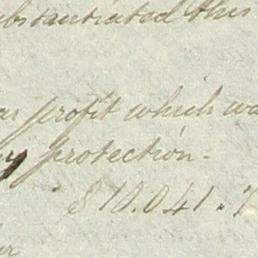 substantiated this
profit which wa
protection.
$10.041.